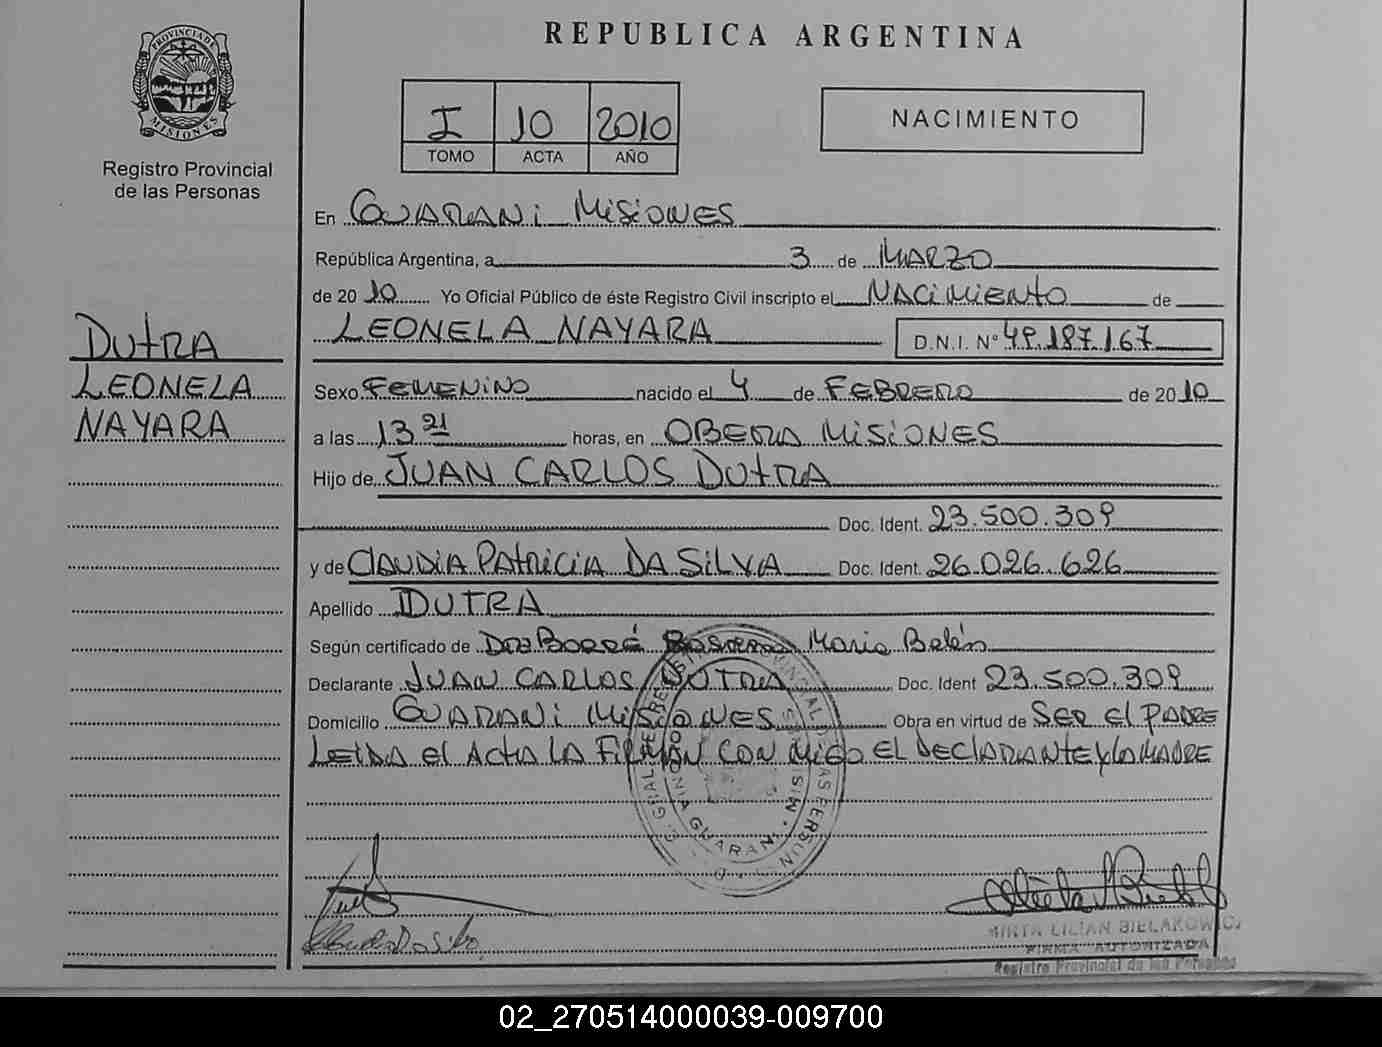 PROVINCIA DE
MISIONES
Registro Provincial
de las Personas
DUTRA
LEONELA
NAYARA
REPUBLICA ARGENTINA
I 10 2010
TOMO ACTA AÑO
NACIMIENTO
En GUARANI MISIONES
República Argentina, a 3 de MARZO
de 20 10 Yo Oficial Público de éste Registro Civil inscripto el NACIMIENTO de
LEONELA NAYARA D.N.I. N° 49.187.167
Sexo FEMENINO nacido el 4 de FEBRERO de 20 10
a las 13 21 horas, en OBERA MISIONES
Hijo de JUAN CARLOS DUTRA
Doc. Ident. 23.500.309
y de CLAUDIA PATRICIA DA SILVA Doc. Ident. 26.026.626
Apellido DUTRA
Según certificado de DRA BORRÉ Maria Belén
Declarante JUAN CARLOS DUTRA Doc. Ident 23.500.309
Domicilio GUARANI MISIONES Obra en virtud de SER El PADRE
LEIDA el ACTA LA FIRMAN CON MIGO EL DECLARANTE y LA MADRE
COLONIA GUARANI - MISIONES
MIRTA LILIAN BIELAKOWICZ
FIRMA AUTORIZADA
Registro Provincial de las Personas
02_270514000039-009700